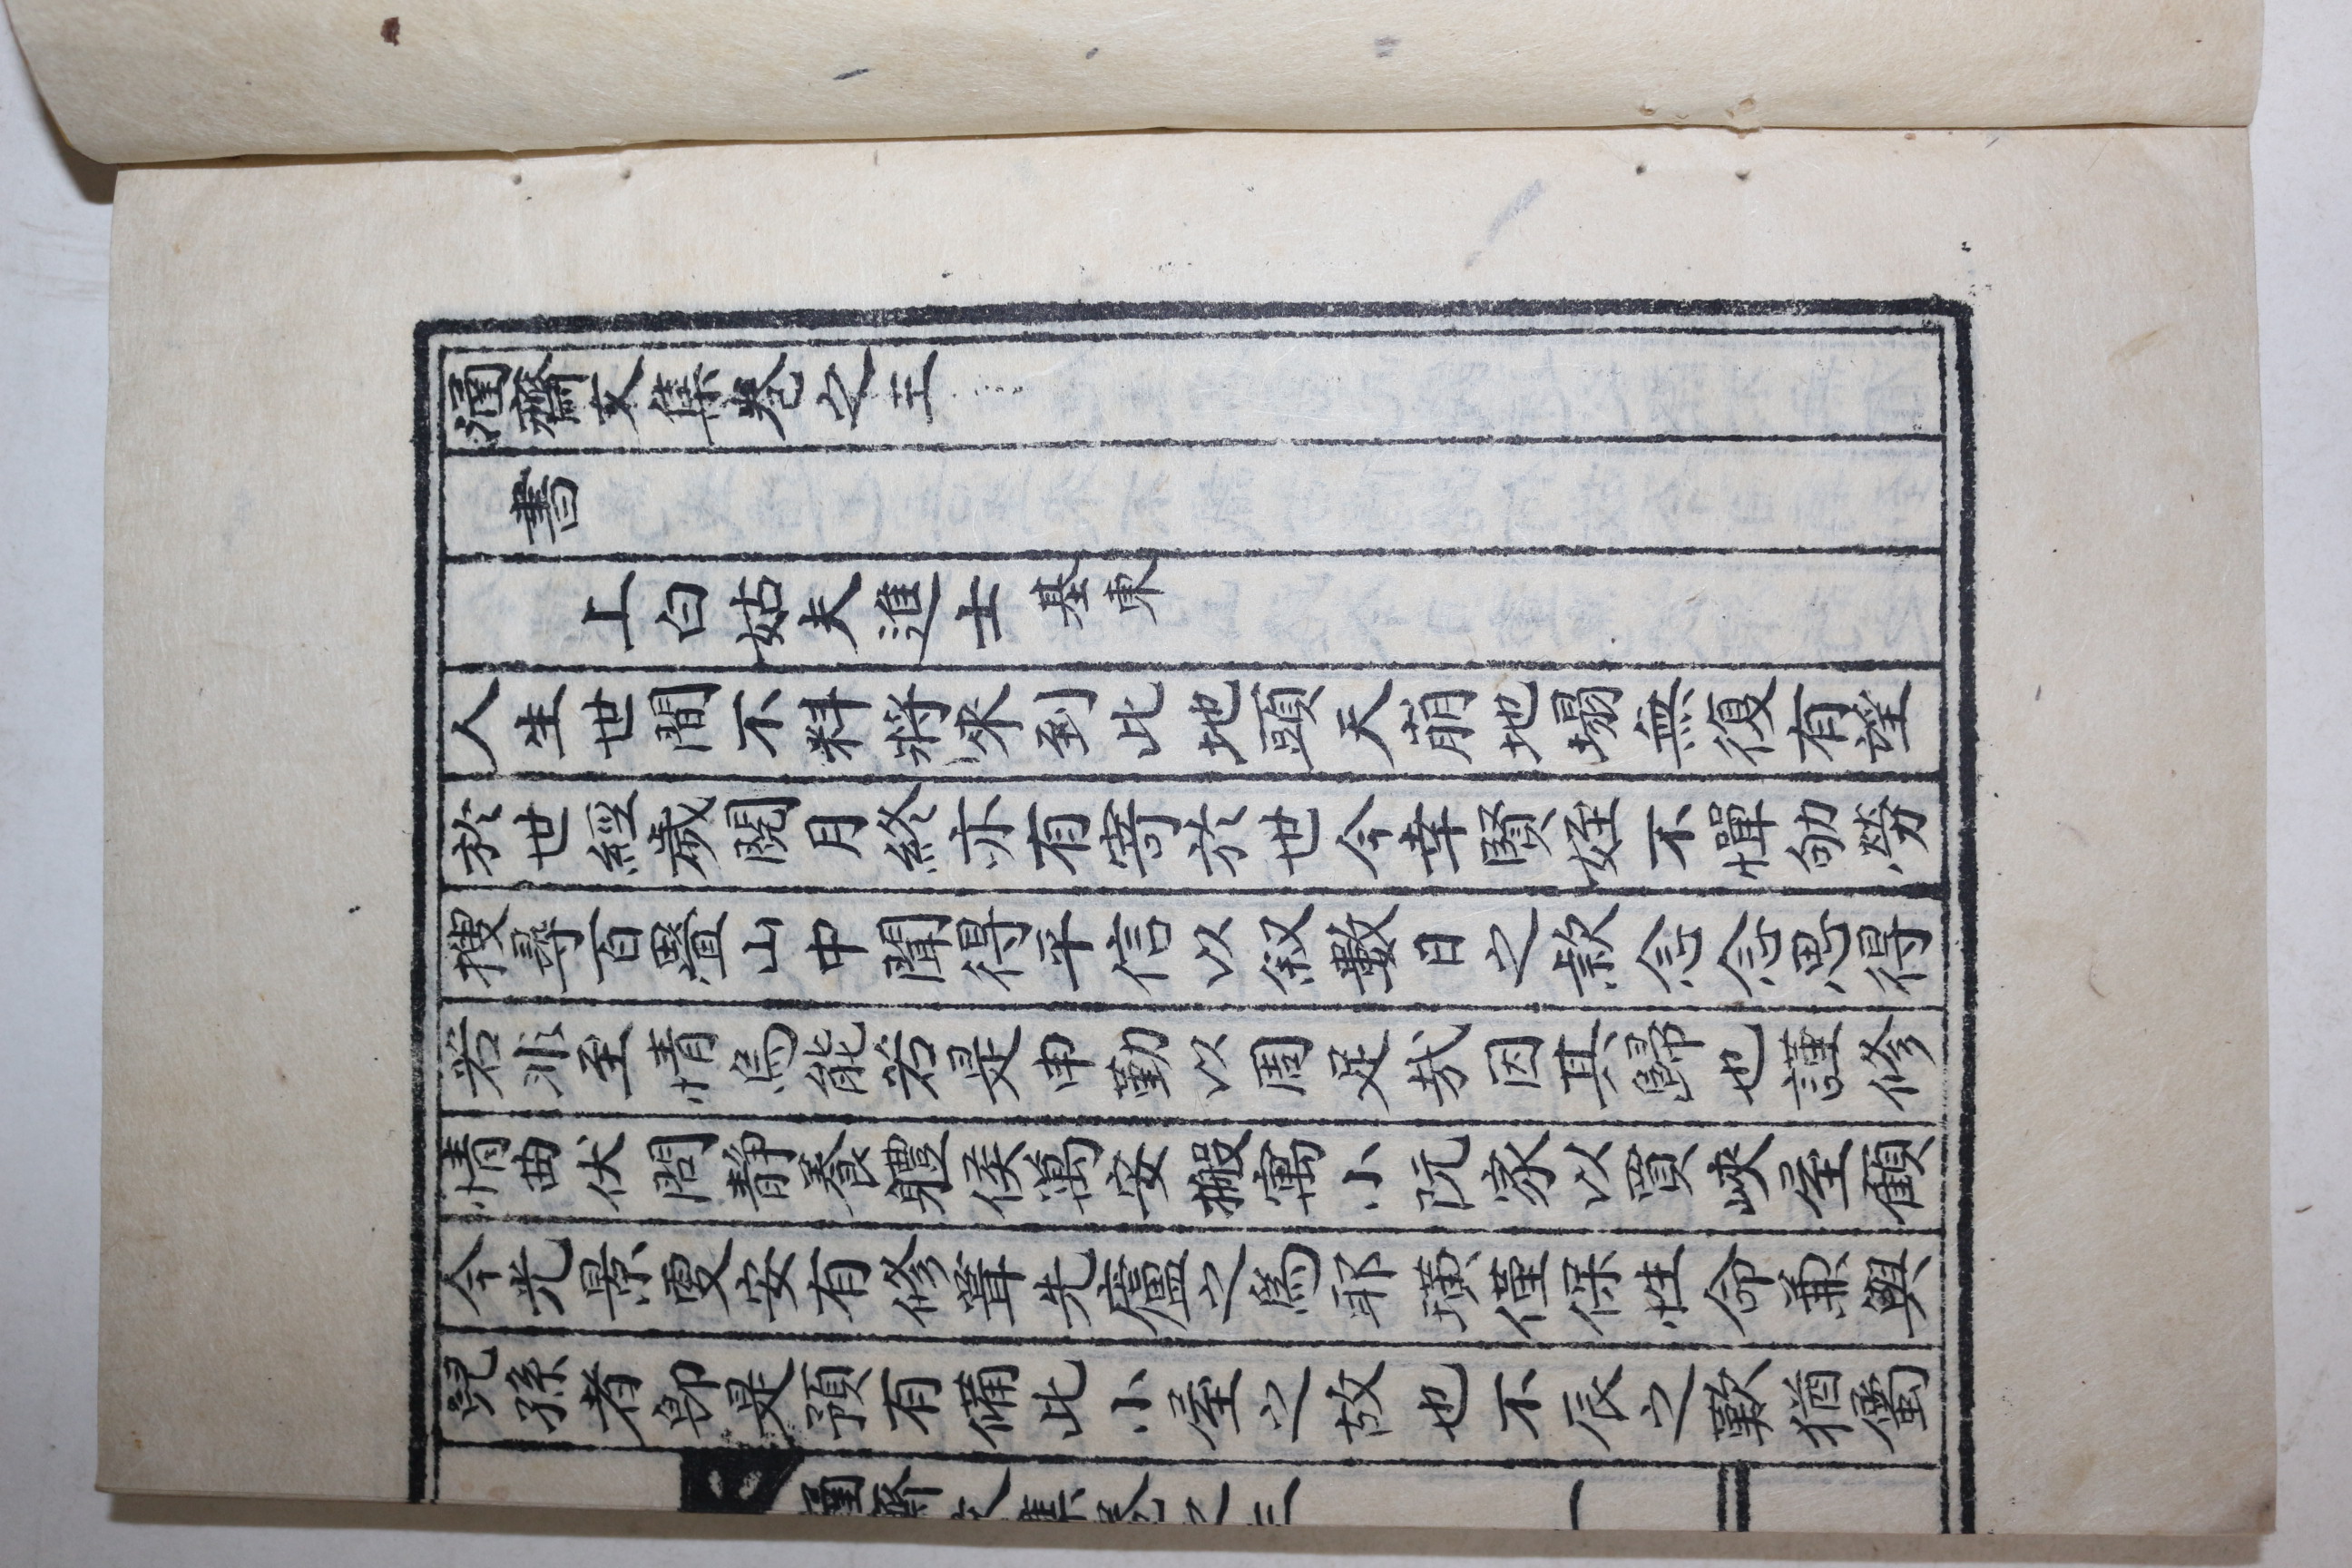 涵齋文集卷之三
書
上白姑夫進士 基東
人生世間不料將來到此地頭天崩地塌無復有望
於世經歲閱月終亦有寄於世今幸賢姪不憚劬勞
搜尋百疊山中聞得平信以叙數日之款念念思得
若非至情烏能若是申勤以周足哉因其歸也謹修
情曲伏問靜養軆侯萬安搬寓小阮家以買峽屋顧
今光景更安有修葺先廬之爲耶璜僅保性命兼與
兒孫者卽是預有備此小屋之故也不辰之歎猶屬
涵齋文集卷之三
一